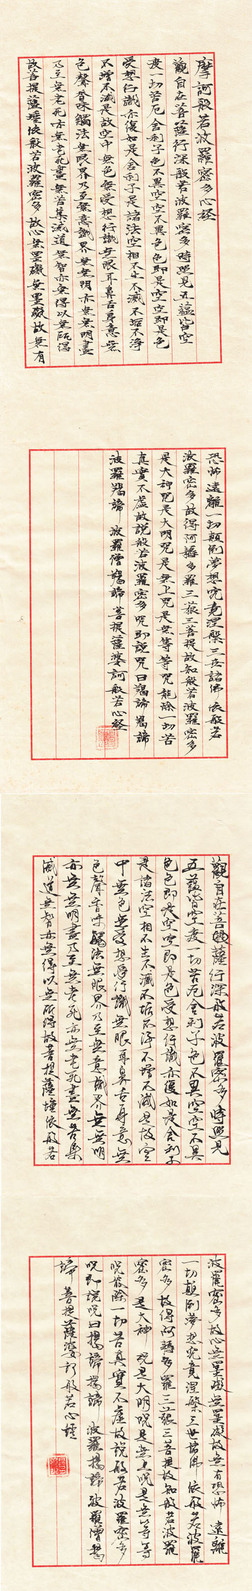 摩訶般若波羅蜜多心経
觀自在菩薩行深般若波羅蜜多時照見五蘊皆空
度一切苦厄舍利子色不異空空不異色色即是空空即是色
受想行識亦復如是舍利子是諸法空相不生不滅不垢不淨
不增不減是故空中無色無受想行識無眼耳鼻舌身意無
色聲香味觸法無眼界乃至無意識界無無明亦無無明盡
乃至無老死亦無老死盡無苦集滅道無智亦無得以無所得
故菩提薩埵依般若波羅蜜多故心無罣礙無罣礙故無有
恐怖遠離一切顛倒夢想究竟涅槃三世諸佛依般若
波羅蜜多故得阿耨多羅三藐三菩提故知般若波羅蜜多
是大神咒是大明咒是無上咒是無等等咒能除一切苦
真實不虛故說般若波羅蜜多咒即說咒曰揭諦揭諦
波羅揭諦 波羅僧揭諦 菩提薩婆訶般若心経
觀自在菩薩行深般若波羅蜜多時照見
五蘊皆空度一切苦厄舍利子色不異空空不異
色色即是空空即是色受想行識亦復如是舍利子
是諸法空相不生不滅不垢不淨不增不減是故空
中無色無受想行識無眼耳鼻舌身意無
色聲香味觸法無眼界乃至無意識界無無明
亦無無明盡乃至無老死亦無老死盡無苦集
滅道無智亦無得以無所得故菩提薩埵依般若
波羅蜜多故心無罣礙無罣礙故無有恐怖遠離
一切顛倒夢想究竟涅槃三世諸佛依般若波羅
蜜多故得阿耨多羅三藐三菩提故知般若波羅
蜜多是大神咒是大明咒是無上咒是無等等
咒能除一切苦真實不虛故說般若波羅蜜多
咒即說咒曰揭諦揭諦 波羅揭諦 波羅僧揭
諦菩提薩婆訶般若心経